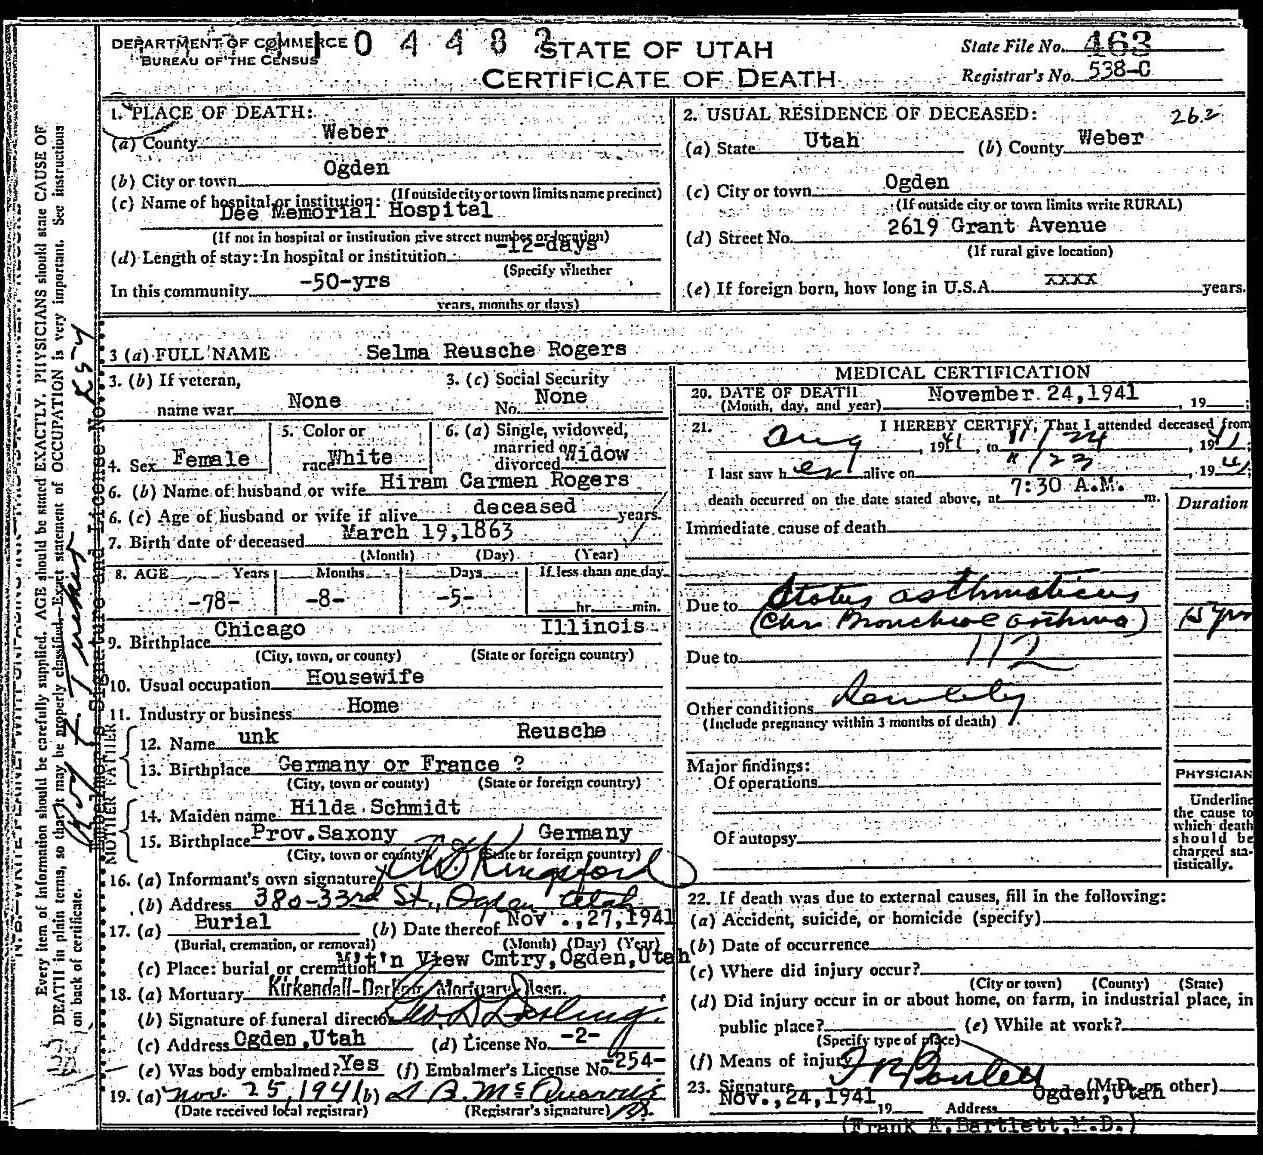 DEPARTMENT OF COMMERCE
BUREAU OF THE CENSUS
0 4 4 8
STATE OF UTAH
CERTIFICATE OF DEATH
State File No. 463
Registrar's No. 538-C
1. PLACE OF DEATH:
(a) County Weber
(b) City or town Ogden
(If outside city or town limits name precinct)
(c) Name of hospital or institution:
Dee Memorial Hospital
(If not in hospital or institution give street number or location)
(d) Length of stay: In hospital or institution -12-days
(Specify whether
In this community -50-yrs
years, months or days)
2. USUAL RESIDENCE OF DECEASED: 262
(a) State Utah (b) County Weber
(c) City or town Ogden
(If outside city or town limits write RURAL)
(d) Street No. 2619 Grant Avenue
(If rural give location)
(e) If foreign born, how long in U.S.A. xxxx years.
3 (a) FULL NAME Selma Reusche Rogers
3. (b) If veteran, name war None
3. (c) Social Security No. None
4. Sex Female
5. Color or race White
6. (a) Single, widowed, married or divorced Widow
6. (b) Name of husband or wife Hiram Carmen Rogers
6. (c) Age of husband or wife if alive deceased years
7. Birth date of deceased March 19,1863
(Month) (Day) (Year)
8. AGE Years Months Days If less than one day
-78- -8- -5- hr. min.
9. Birthplace Chicago Illinois
(City, town, or county) (State or foreign country)
10. Usual occupation Housewife
11. Industry or business Home
FATHER
12. Name unk Reusche
13. Birthplace Germany or France ?
(City, town or county) (State or foreign country)
MOTHER
14. Maiden name Hilda Schmidt
15. Birthplace Prov.Saxony Germany
(City, town or county) (State or foreign country)
16. (a) Informant's own signature Kingsford
(b) Address 380-33rd St., Ogden Utah
17. (a) Burial (b) Date thereof Nov.,27,1941
(Burial, cremation, or removal) (Month) (Day) (Year)
(c) Place: burial or cremation M't'n View Cmtry,Ogden,Utah
18. (a) Mortuary Kirkendall-Darling Mortuary
(b) Signature of funeral director Geo. D Darling
(c) Address Ogden,Utah (d) License No. -2-
(e) Was body embalmed? Yes (f) Embalmer's License No. -254-
19. (a) Nov. 25, 1941 (b)
(Date received local registrar) (Registrar's signature)
MEDICAL CERTIFICATION
20. DATE OF DEATH November 24,1941 , 19 ;
(Month, day, and year)
21. I HEREBY CERTIFY, That I attended deceased from
Aug , 1941 to 11/24 , 1941;
I last saw her alive on 11/23 , 1941;
death occurred on the date stated above, at 7:30 A.M. m.
Duration
Immediate cause of death
Due to Status asthmaticus
(Chr Bronchial asthma) 15 yrs
Due to 112
Other conditions Senility
(Include pregnancy within 3 months of death)
Major findings:
Of operations
Of autopsy
PHYSICIAN
Underline
the cause to
which death
should be
charged sta-
tistically.
22. If death was due to external causes, fill in the following:
(a) Accident, suicide, or homicide (specify)
(b) Date of occurrence
(c) Where did injury occur?
(City or town) (County) (State)
(d) Did injury occur in or about home, on farm, in industrial place, in
public place? (e) While at work?
(Specify type of place)
(f) Means of injury
23. Signature F K Bartlett (M.D. or other)
Nov.,24,1941 19 Address Ogden,Utah
(Frank K.Bartlett,M.D.)
Every item of information should be carefully supplied. AGE should be stated EXACTLY. PHYSICIANS should state CAUSE OF
DEATH in plain terms, so that it may be properly classified. Exact statement of OCCUPATION is very important. See instructions
on back of certificate.
Embalmer's Signature and License No.